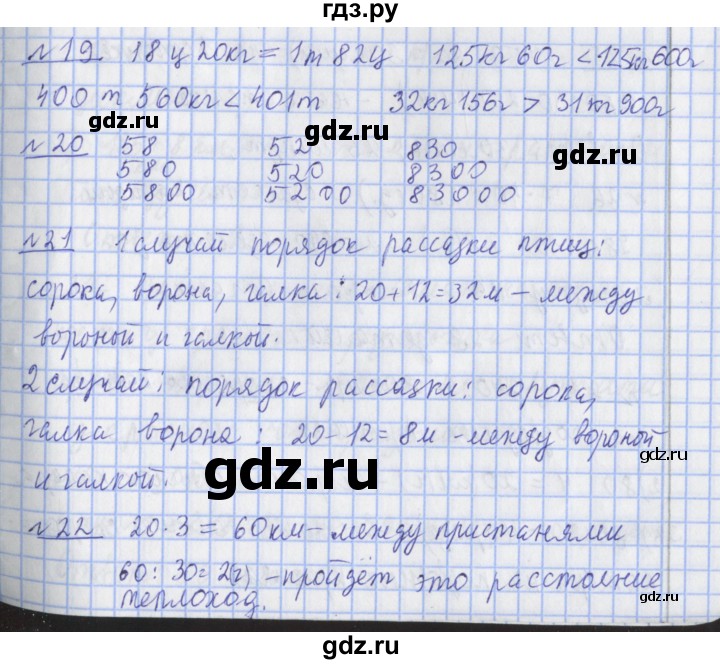 гдз.ру
№19 18 ц 20кг = 1т 82ц 125кг 60г < 125кг 600г
400 т 560кг < 401т 32кг 156г > 31 кг 900г
gdz.ru gdz.ru
№20 58 52 830
580 520 8300
5800 5200 83000
gdz.ru gdz.ru
№21 1 случай порядок рассадки птиц:
сорока, ворона, галка: 20+12=32м – между
вороной и галкой.
2 случай: порядок рассадки: сорока,
галка ворона: 20-12=8м -между вороной
и галкой.
gdz.ru gdz.ru
№22 20·3 = 60км – между пристанями
60:30=2(ч) – пройдёт это расстояние
теплоход.
gdz.ru
gdz.ru